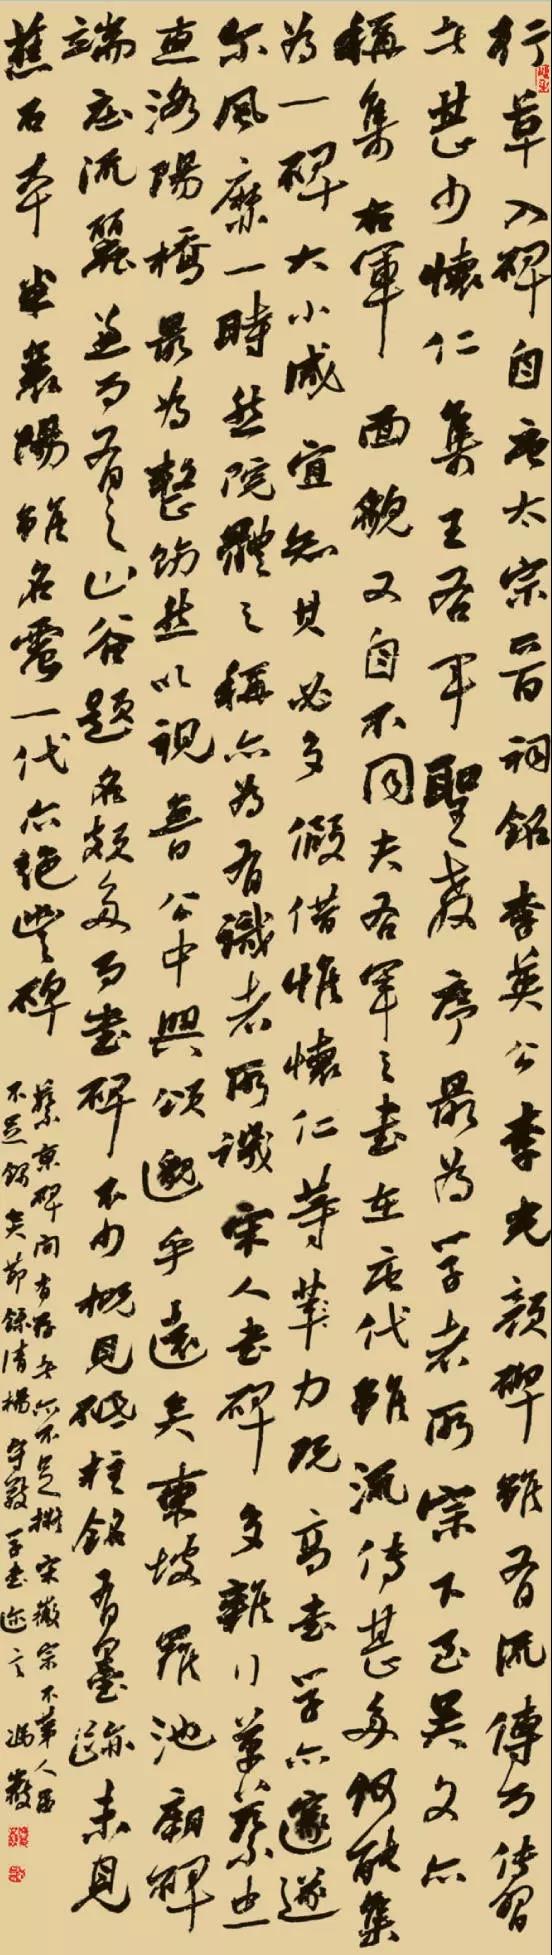 行草入碑自唐太宗晉祠銘李英公李光顏碑雖有流傳而傳習
者甚少懷仁集王右軍聖教序最為學者所宗下至吳文亦
稱集右軍面貌又自不同夫右軍之書在唐代雖流傳甚多何能集
為一碑大小咸宜知其必多假借惟懷仁等筆力既高書學亦邃遂
尔風靡一時然院體之稱亦為有識者所譏宋人書碑多雜行草蔡忠
惠洛陽橋最為整飭然以視魯公中興頌邈乎遠矣東坡羅池廟碑
端莊流麗兼而有之山谷題名頗多而書碑不少概見砥柱銘有墨跡未見
舊石本米襄陽雖名震一代亦絕豐碑
蔡京碑間有存者亦不足觀宋徽宗不第人品
不足錄矣節錄清楊守敬學書迩言